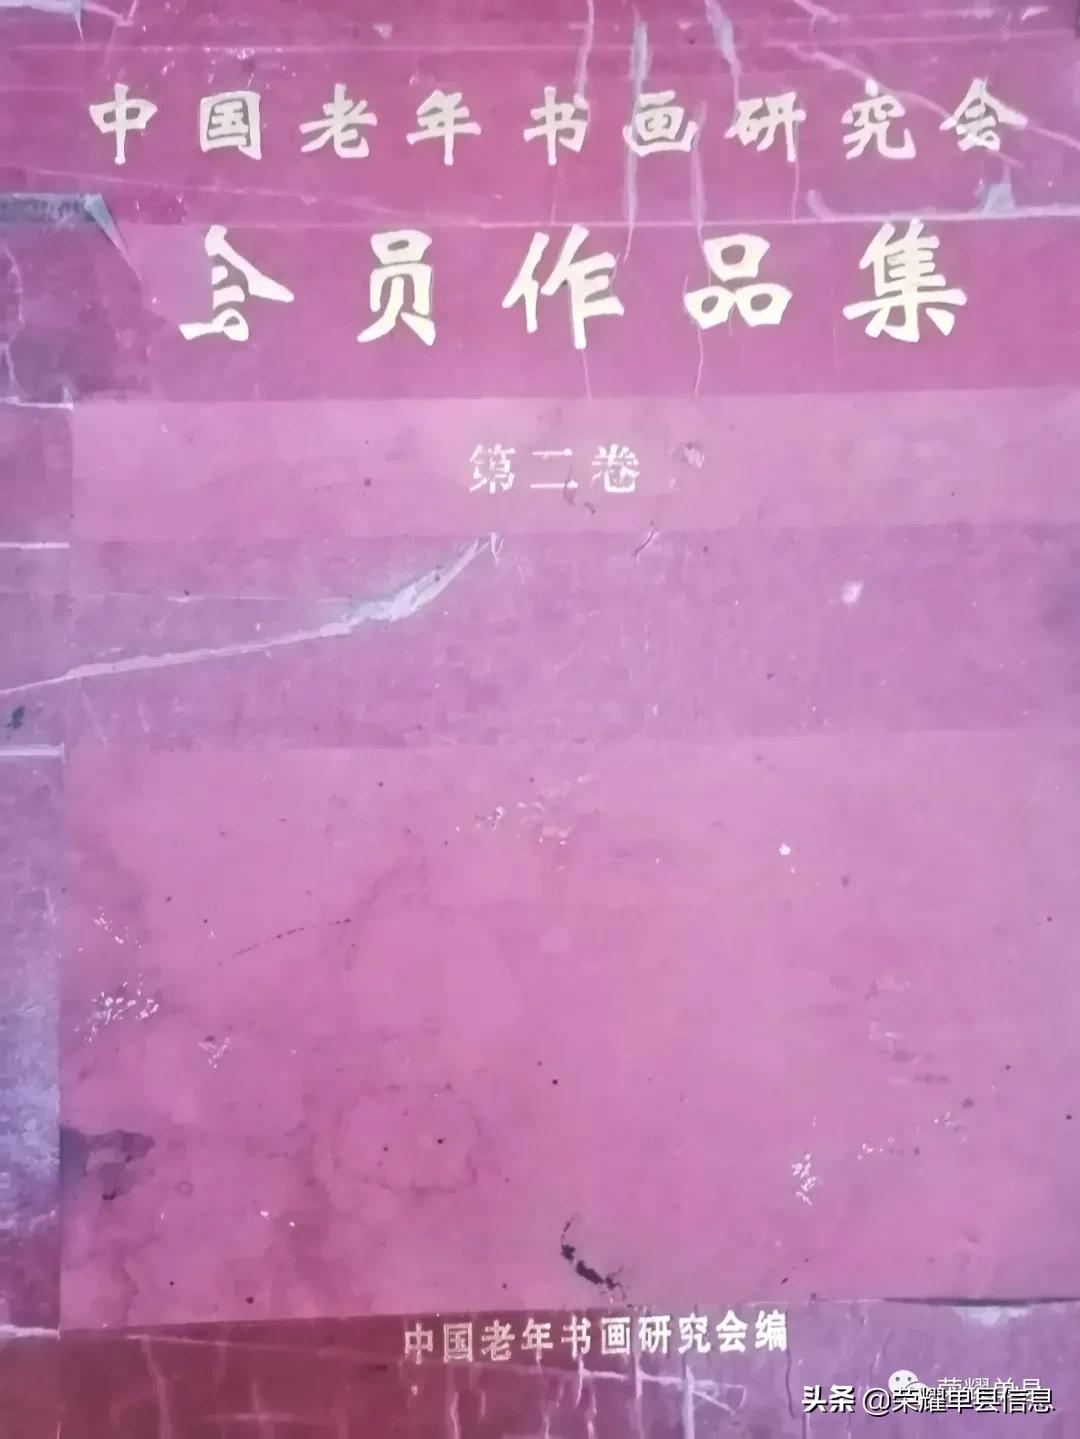 中国老年书画研究会
会员作品集
第二卷
中国老年书画研究会编
荣耀单县
头条 @荣耀单县信息